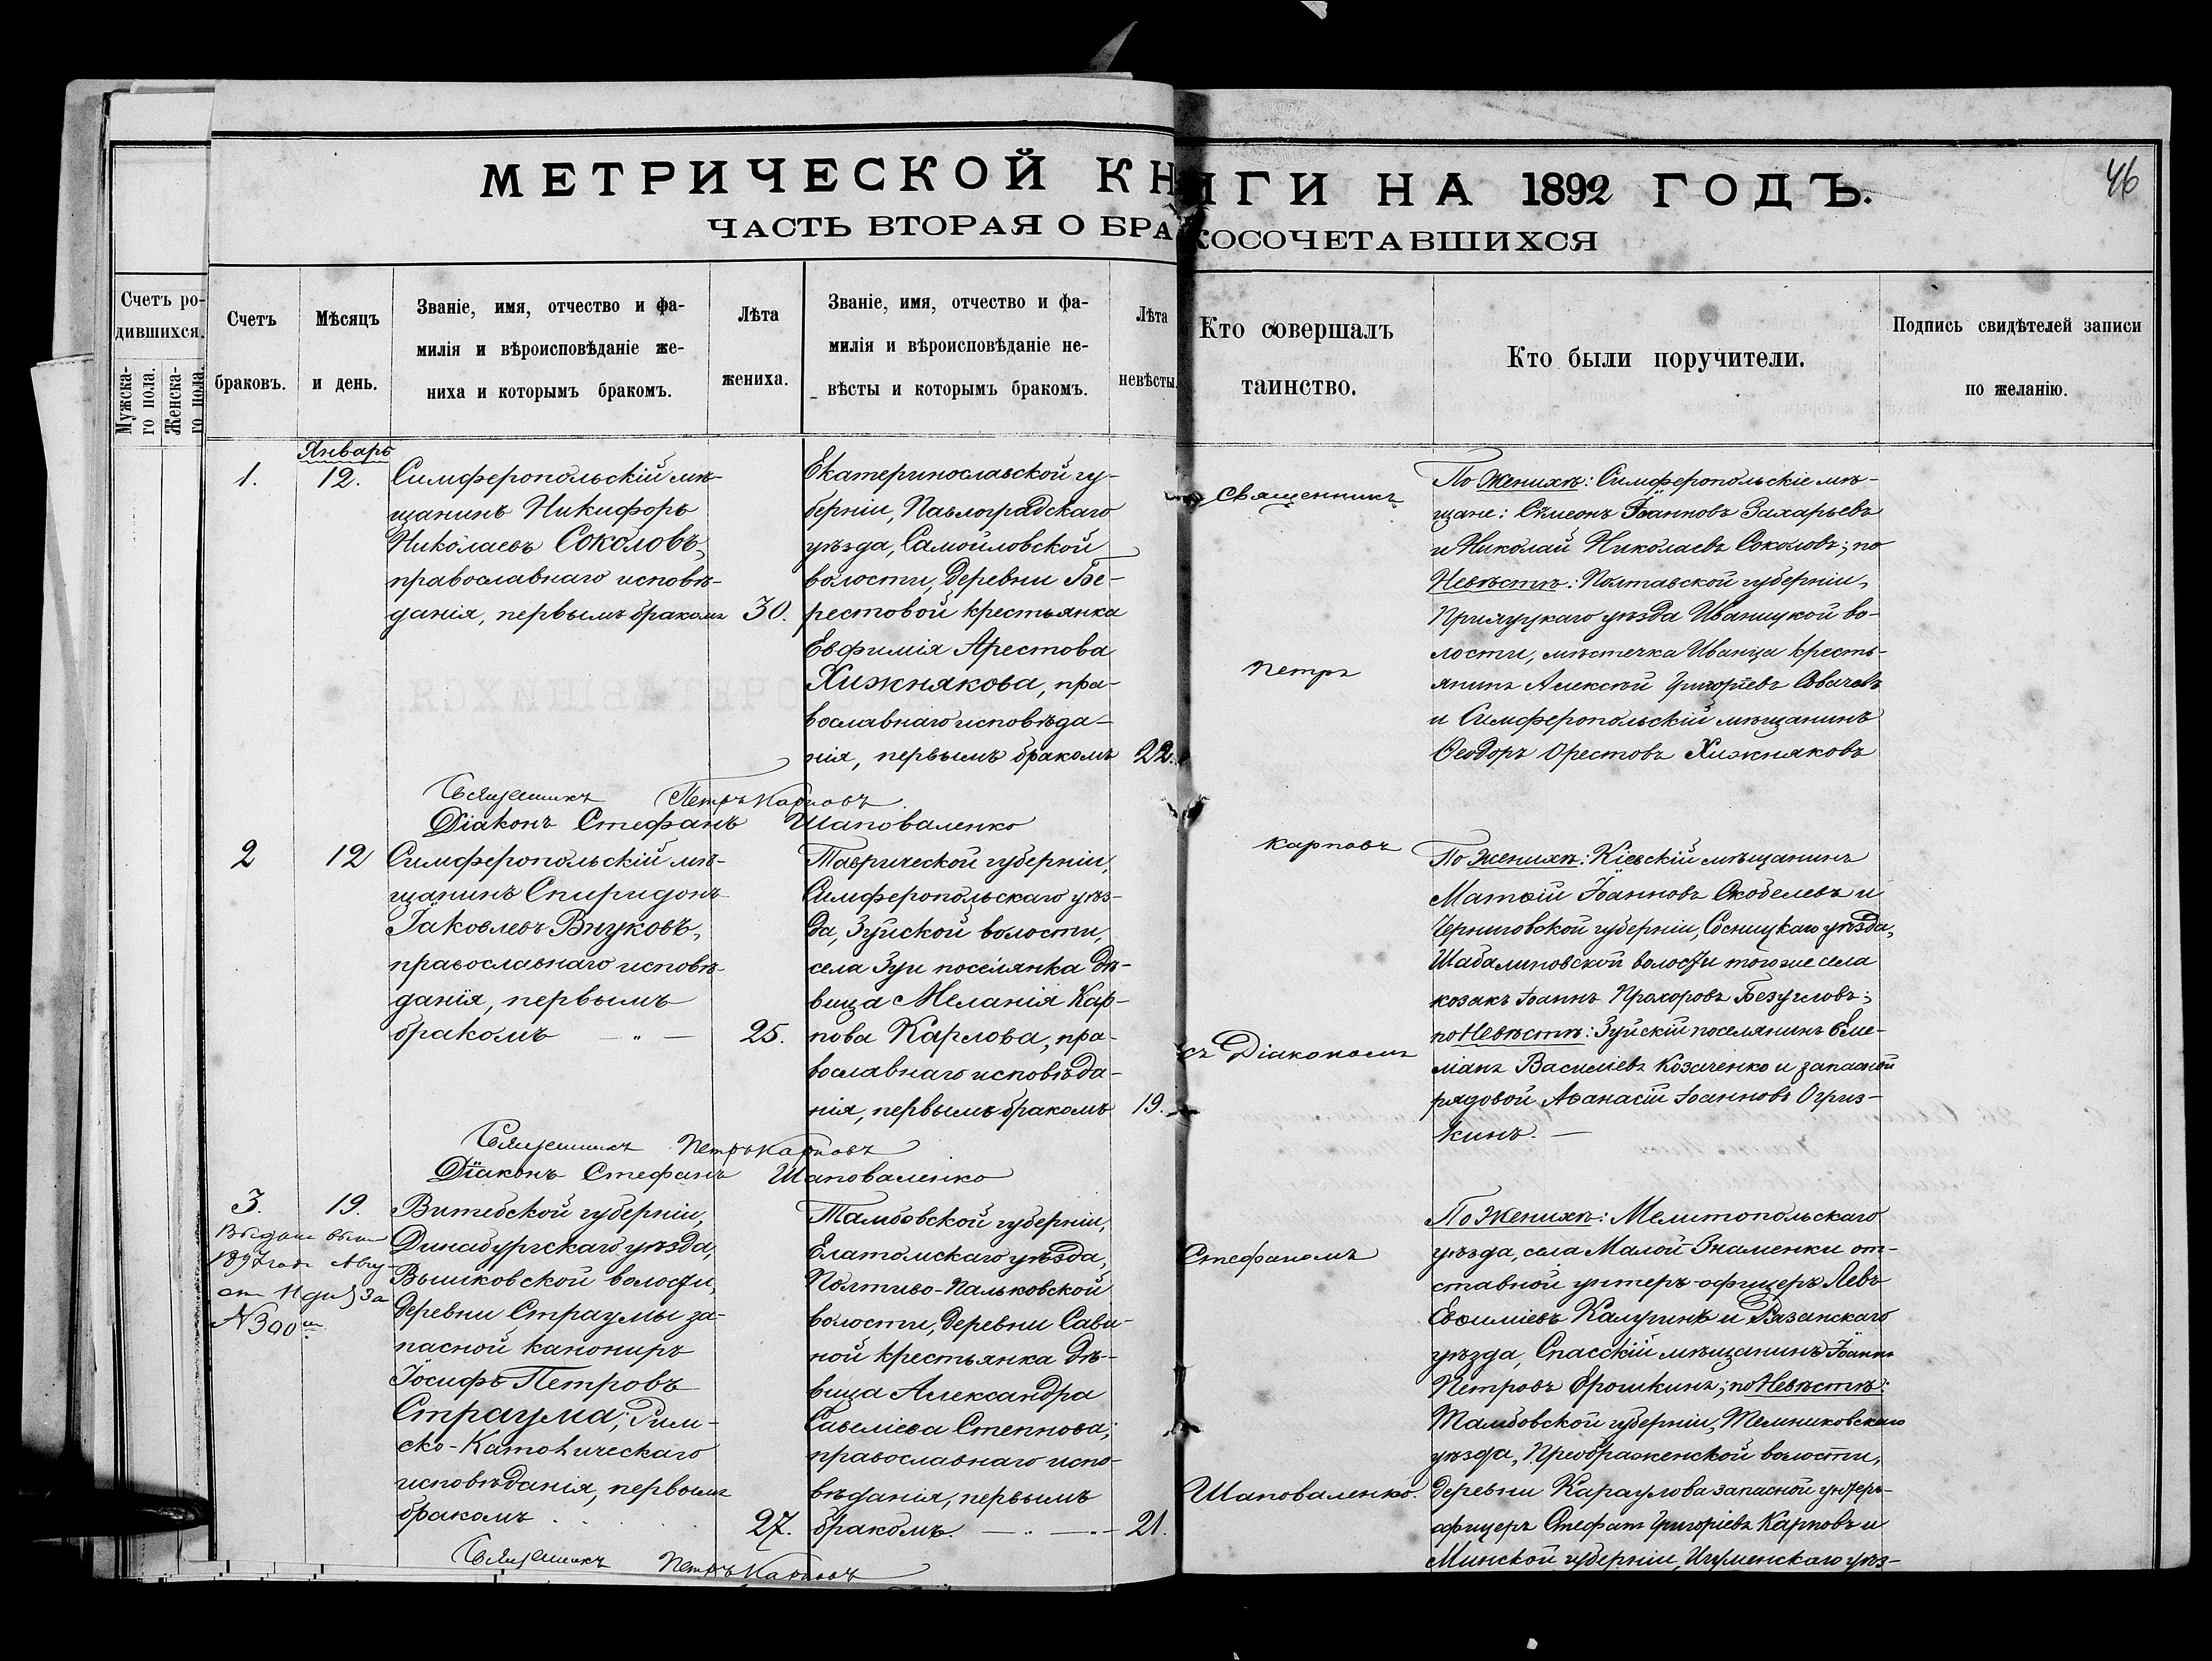 МЕТРИЧЕСКОЙ КНИГИ НА 1892 ГОДЪ.
46
ЧАСТЬ ВТОРАЯ О БРАКОСОЧЕТАВШИХСЯ
Счетъ ро-
дившихся.
Мужска-
го пола.
Женска-
го пола.
Счетъ
браковъ.
Мѣсяцъ
и день.
Званіе, имя, отчество и фа-
милія и вѣроисповѣданіе же-
ниха и которымъ бракомъ.
Лѣта
жениха.
Званіе, имя, отчество и фа-
милія и вѣроисповѣданіе не-
вѣсты и которымъ бракомъ.
Лѣта
невѣсты.
Кто совершалъ
таинство.
Кто были поручители.
Подпись свидѣтелей записи
по желанію.
Январь
1.
12.
Симферопольскій мѣ-
щанинъ Никифоръ
Николаевъ Соколовъ,
православнаго исповѣ-
данія, первымъ бракомъ
30.
Екатеринославской гу-
берніи, Павлоградскаго
уѣзда, Самойловской
волости, деревни Бе-
рестовой крестьянка
Евфимія Арестова
Хижнякова, пра-
вославнаго исповѣда-
нія, первымъ бракомъ
22.
Священникъ Петръ Карповъ
Діаконъ Стефанъ Шаповаленко
Священникъ
Петръ
Карповъ
съ Діакономъ
Стефаномъ
Шаповаленко.
По Женихѣ: Симферопольскіе мѣ-
щане: Сѵмеонъ Іоанновъ Захарьевъ
и Николай Николаевъ Соколовъ; по
Невѣстѣ: Полтавской губерніи,
Прилуцкаго уѣзда Иваницкой во-
лости, мѣстечка Иваница кресть-
янинъ Алексѣй Григоріевъ
и Симферопольскій мѣщанинъ
Ѳеодоръ Орестовъ Хижняковъ
2
12
Симферопольскій мѣ-
щанинъ Спиридонъ
Іаковлевъ Внуковъ,
православнаго исповѣ-
данія, первымъ
бракомъ — „ —
25.
Таврической губерніи,
Симферопольскаго уѣз-
да, Зуйской волости,
села Зуи поселянка дѣ-
вица Меланія Кар-
пова Карлова, пра-
вославнаго исповѣда-
нія, первымъ бракомъ
19.
Священникъ Петръ Карповъ
Діаконъ Стефанъ Шаповаленко
По Женихѣ: Кіевскій мѣщанинъ
Матѳій Іоанновъ Скобелевъ и
Черниговской губерніи, Сосницкаго уѣзда,
Шабалиновской волости того же села
козакъ Іоаннъ Прохоровъ Безугловъ;
по Невѣстѣ: Зуйскій поселянинъ Еме-
ліанъ Василіевъ Козаченко и запасной
рядовой Аѳанасій Іоанновъ Огриз-
кинъ. —
3.
19.
Выдана выпи
1897 года Авгу-
ста 11 дня за
№ 390
Витебской губерніи,
Динабургскаго уѣзда,
Вышковской волости,
деревни Страумы за-
пасной канониръ
Іосифъ Петровъ
Страума; Рим-
ско-Католическаго
исповѣданія, первымъ
бракомъ . . .
27.
Тамбовской губерніи,
Елатомскаго уѣзда,
Полтево-Пальковской
волости, деревни Сави-
ной крестьянка дѣ-
вица Александра
Савеліева Степнова;
православнаго испо-
вѣданія, первымъ
бракомъ. — „ — „ —
21.
Священникъ Петръ Карповъ
По Женихѣ: Мелитопольскаго
уѣзда, села Малой Знаменки от-
ставной унтеръ-офицеръ Левъ
Евѳиміевъ Калугинъ и Рязанскаго
уѣзда, Спасскій мѣщанинъ Іоаннъ
Петровъ Ерошкинъ; по Невѣстѣ:
Тамбовской губерніи, Темниковскаго
уѣзда, Преображенской волости,
деревни Караулова запасной унтеръ-
офицеръ Стефанъ Григоріевъ Карповъ и
Минской губерніи, Игуменскаго уѣз-